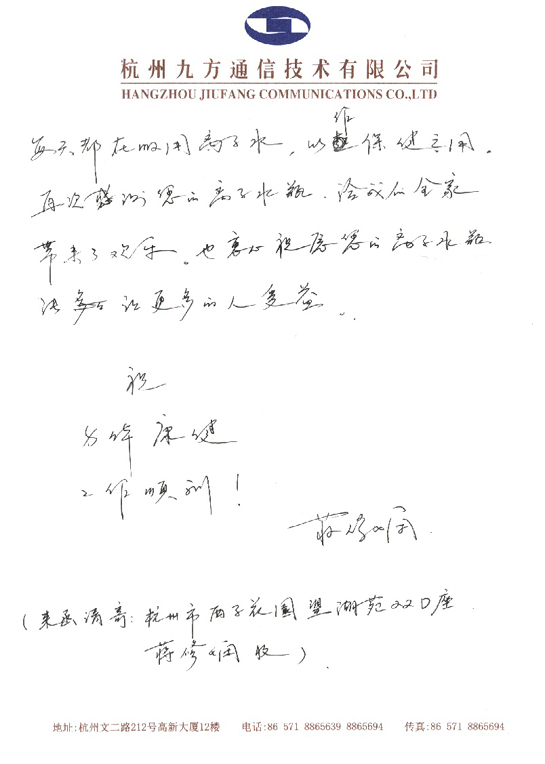 杭州九方通信技术有限公司
HANGZHOU JIUFANG COMMUNICATIONS CO.,LTD
每天都在吸用离子水，以作保健之用。
再次感谢您的离子水瓶，给我们全家
带来了欢乐。也衷心祝愿您的离子水瓶
让更多的人受益。
祝
身体康健
工作顺利！
蒋修润
（来函请寄：杭州市西子花园望湖苑双口座
蒋修润收）
地址:杭州文二路212号高新大厦12楼 电话:86 571 8865639 8865694 传真:86 571 8865694